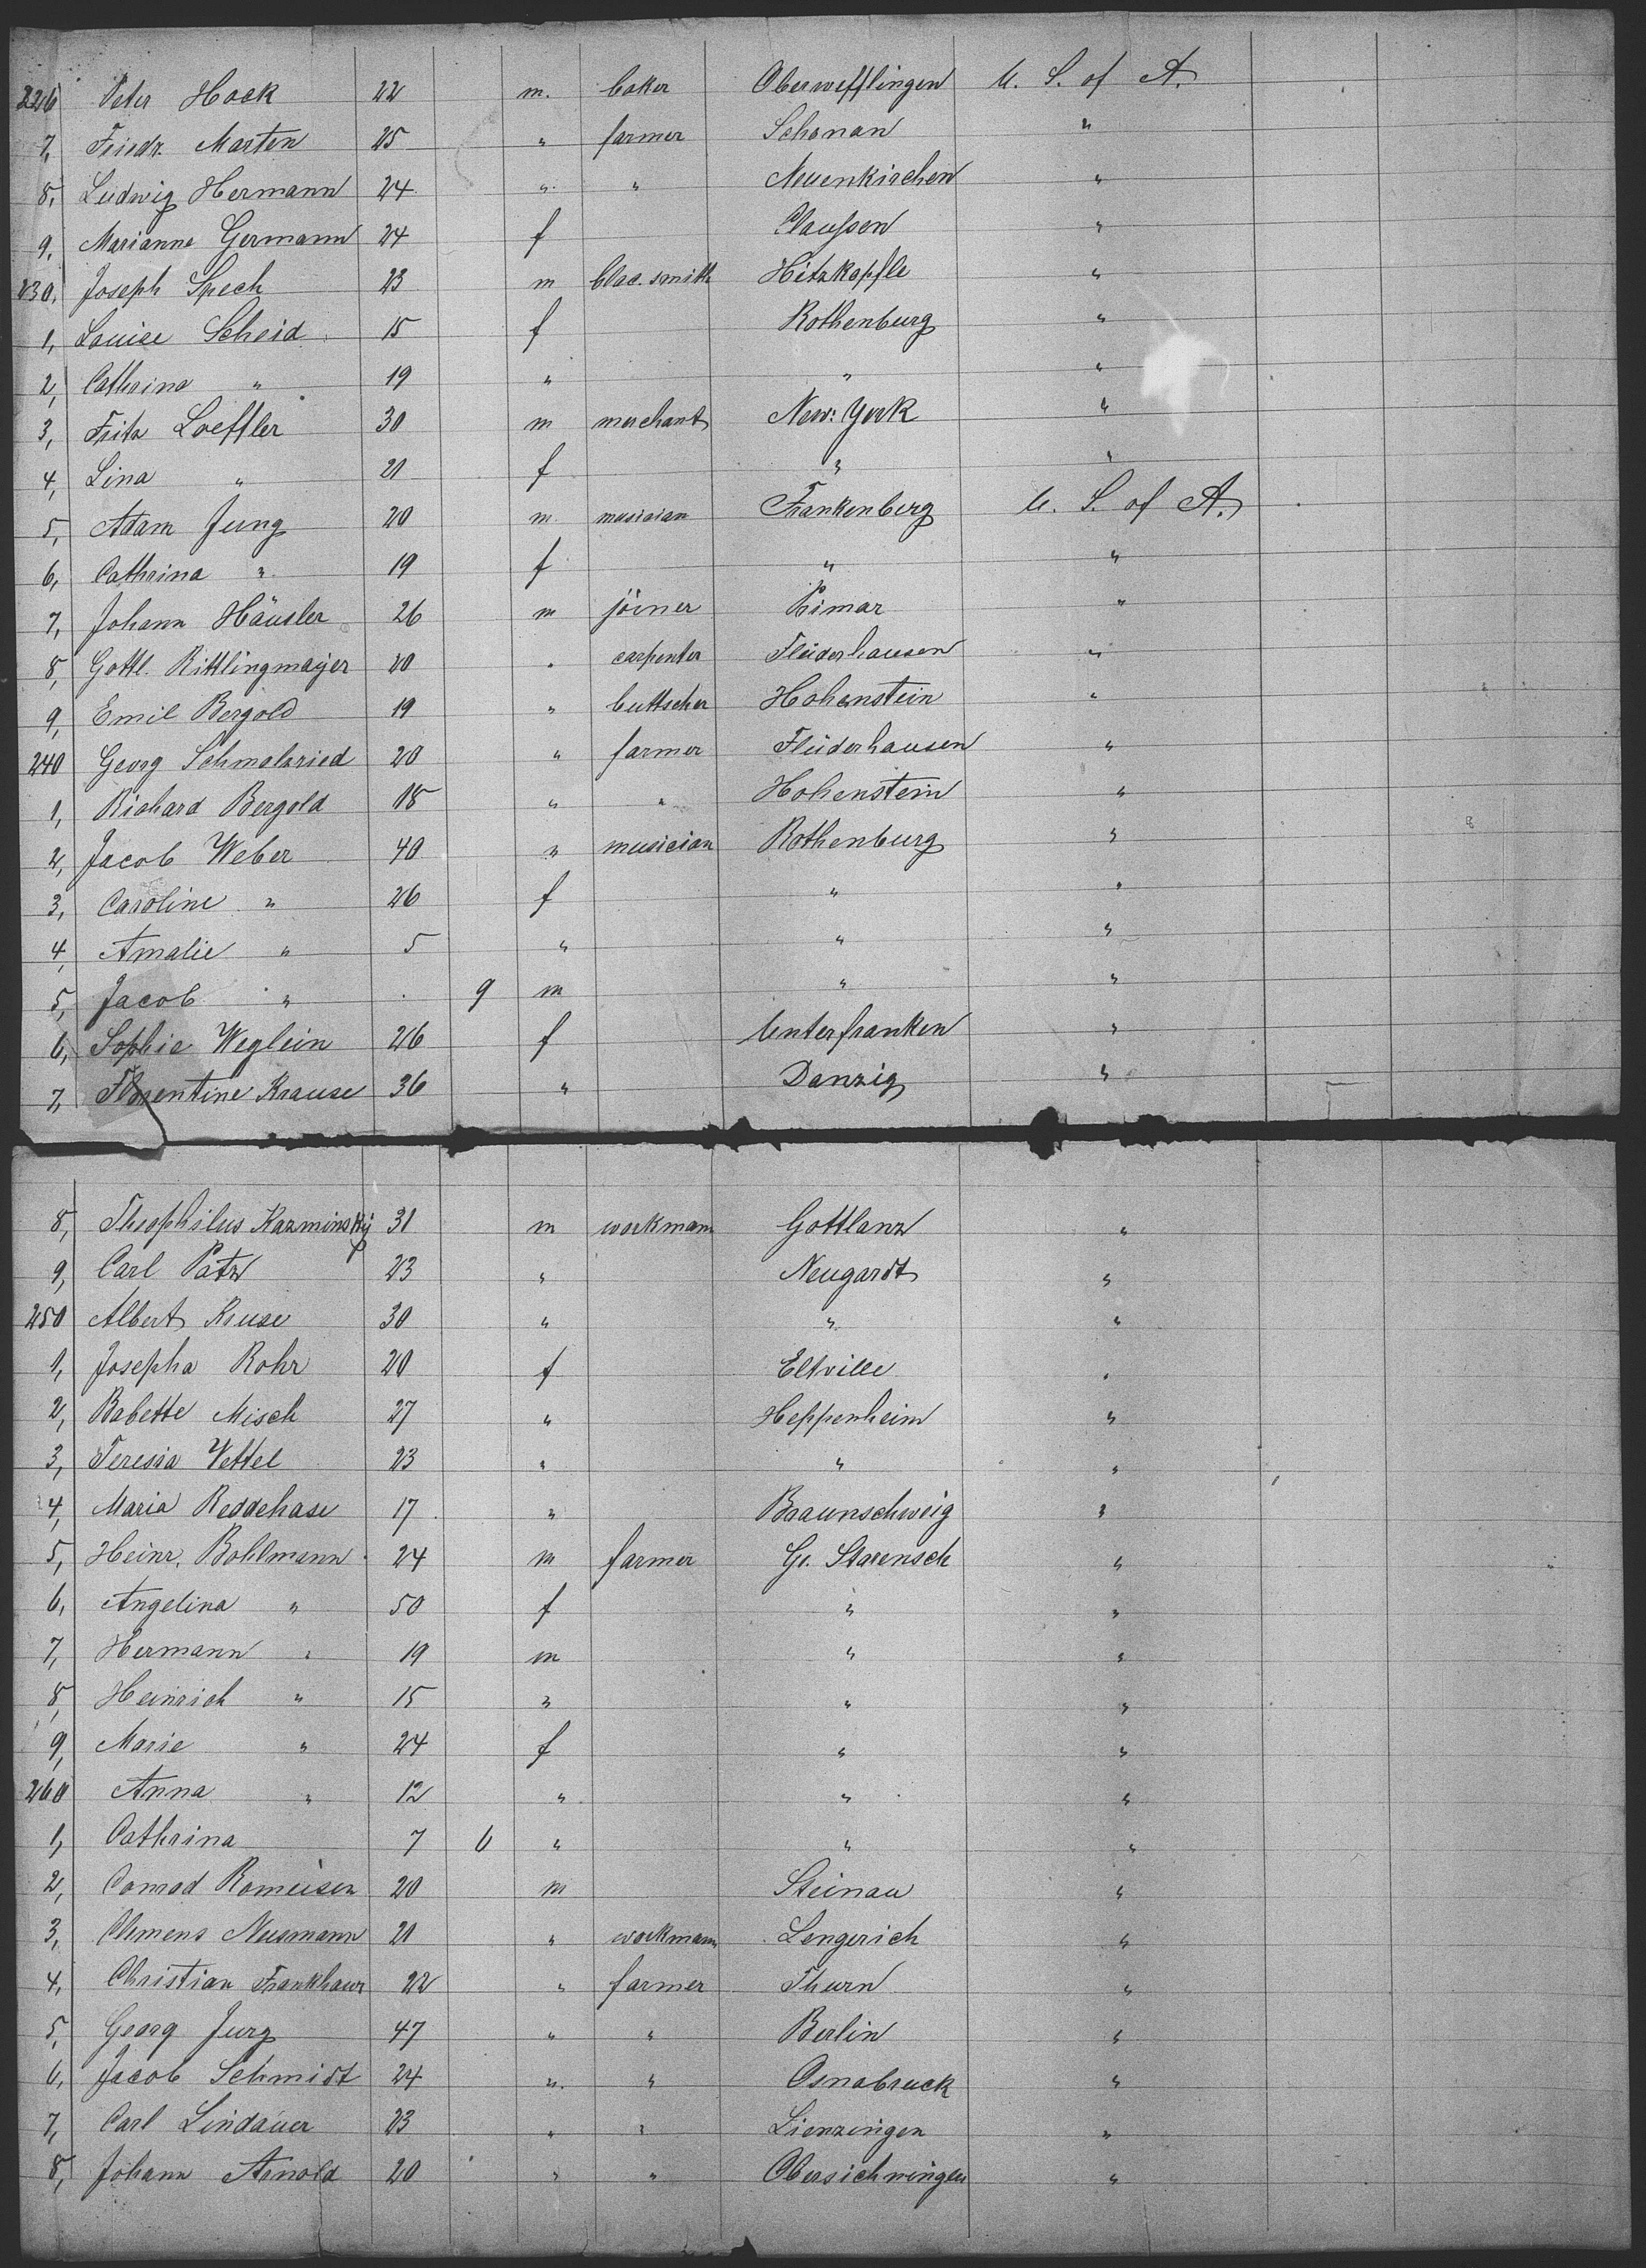 226 Peter Hock 22 m. baker Oberwefflingen U. S. of A.
7, Friedr. Marten 25 " farmer Schonan "
8, Ludwig Hermann 24 " " Neuenkirchen "
9, Marianne Germann 24 f Claussen "
230, Joseph Spech 23 m blac. smith Hitzkopfle "
1, Louise Scheid 15 f Rothenburg "
2, Cathrina " 19 " " "
3, Fritz Loeffler 30 m merchant New: York "
4, Lina " 21 f " "
5, Adam Jung 20 m musician Frankenberg U. S. of A.
6, Cathrina " 19 f " "
7, Johann Häusler 26 m joiner "
8, Gottl. Rittlingmayer 20 " carpenter Flüderhausen "
9, Emil Bergold 19 " buttscher Hohenstein "
240 Georg Schmalzried 20 " farmer Flüderhausen "
1, Richard Bergold 18 " " Hohenstein "
2, Jacob Weber 40 " musician Rothenburg "
3, Caroline " 26 f " "
4, Amalie " 5 " " "
5, Jacob " . 9 m " "
6, Sophie Weglein 26 f Unterfranken "
7, Florentine Krause 36 " Danzig "
8, Theophilus Kazminsky 31 m workmann Gottlanz "
9, Carl Patz 23 " Neugardt "
250 Albert Kruse 30 " " "
1, Josepha Rohr 20 f Eltville "
2, Babette Misch 27 " Heppenheim "
3, Teresia Vettel 23 " " "
4, Maria Reddehase 17 " Braunschweig "
5, Heinr. Bohlmann 24 m farmer Gr. "
6, Angelina " 50 f " "
7, Hermann " 19 m " "
8, Heinrich " 15 " " "
9, Marie " 24 f " "
260 Anna " 12 " " "
1, Cathrina 7 6 " " "
2, Conrad Romeiser 20 m Steinau "
3, Clemens Nusmann 21 " workmann Lengerich "
4, Christian Frankhaus 22 " farmer Thurn "
5, Georg Jurg 47 " " Berlin "
6, Jacob Schmidt 24 " " Osnabruck "
7, Carl Lindauer 23 " " Lienzingen "
8, Johann Arnold 20 " " "